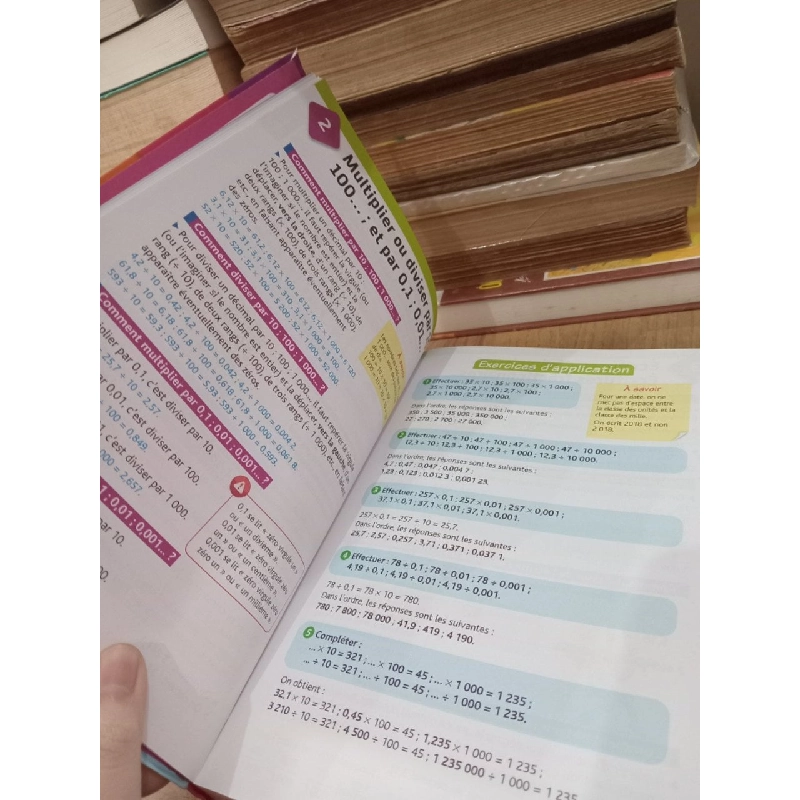 2
Multiplier ou diviser par
100... ; et par 0,1 ; 0,01
Comment multiplier par 10 ; 100 ; 1 000... ?
Pour multiplier un décimal par 10 ;
100 ; 1 000..., il faut repérer la virgule (ou
l'imaginer si le nombre est entier) et la
déplacer, vers la droite, d'un rang (× 10), de
deux rangs (× 100), de trois rangs (× 1 000)
etc., en faisant apparaître éventuellement
des zéros.
6,12 × 10 = 61,2 ; 6,12 × 100 = 612 ; 6,12 × 1 000 = 6 120.
3,1 × 10 = 31 ; 3,1 × 100 = 310 ; 3,1 × 1 000 = 3 100.
52 × 10 = 520 ; 52 × 100 = 5 200 ; 52 × 1 000 = 52 000.
Comment diviser par 10 ; 100 ; 1 000... ?
Pour diviser un décimal par 10 ; 100 ; 1 000..., il faut repérer la virgule
(ou l'imaginer si le nombre est entier) et la déplacer, vers la gauche, d'un
rang (÷ 10), de deux rangs (÷ 100), de trois rangs (÷ 1 000) etc., en faisant
apparaître éventuellement des zéros.
4,2 ÷ 10 = 0,42 ; 4,2 ÷ 100 = 0,042 ; 4,2 ÷ 1 000 = 0,004 2.
61,8 ÷ 10 = 6,18 ; 61,8 ÷ 100 = 0,618 ; 61,8 ÷ 1 000 = 0,061 8.
593 ÷ 10 = 59,3 ; 593 ÷ 100 = 5,93 ; 593 ÷ 1 000 = 0,593.
Comment multiplier par 0,1 ; 0,01 ; 0,001... ?
plier par 0,1, c'est diviser par 10.
= 25,7 ÷ 10 = 2,57.
par 0,01, c'est diviser par 100.
100 = 0,849.
, c'est diviser par 1 000.
= 2,657.
; 0,01 ; 0,001... ?
par 10.
00.
0,1 se lit « zéro virgule un »
ou « un dixième ».
0,01 se lit « zéro virgule zéro
un » ou « un centième ».
0,001 se lit « zéro virgule zéro
zéro un » ou « un millième ».
Exercices d'application
1 Effectuer : 35 × 10 ; 35 × 100 ; 35 × 1 000 ;
35 × 10 000 ; 2,7 × 10 ; 2,7 × 100 ;
2,7 × 1 000 ; 2,7 × 10 000.
Dans l'ordre, les réponses sont les suivantes :
350 ; 3 500 ; 35 000 ; 350 000 ;
27 ; 270 ; 2 700 ; 27 000.
À savoir
Pour une date, on ne
met pas d'espace entre
la classe des unités et la
classe des mille.
On écrit 2018 et non
2 018.
2 Effectuer : 47 ÷ 10 ; 47 ÷ 100 ; 47 ÷ 1 000 ; 47 ÷ 10 000 ;
12,3 ÷ 10 ; 12,3 ÷ 100 ; 12,3 ÷ 1 000 ; 12,3 ÷ 10 000.
Dans l'ordre, les réponses sont les suivantes :
4,7 ; 0,47 ; 0,047 ; 0,004 7 ;
1,23 ; 0,123 ; 0,012 3 ; 0,001 23.
3 Effectuer : 257 × 0,1 ; 257 × 0,01 ; 257 × 0,001 ;
37,1 × 0,1 ; 37,1 × 0,01 ; 37,1 × 0,001.
257 × 0,1 = 257 ÷ 10 = 25,7.
Dans l'ordre, les réponses sont les suivantes :
25,7 ; 2,57 ; 0,257 ; 3,71 ; 0,371 ; 0,037 1.
4 Effectuer : 78 ÷ 0,1 ; 78 ÷ 0,01 ; 78 ÷ 0,001 ;
4,19 ÷ 0,1 ; 4,19 ÷ 0,01 ; 4,19 ÷ 0,001.
78 ÷ 0,1 = 78 × 10 = 780.
Dans l'ordre, les réponses sont les suivantes :
780 ; 7 800 ; 78 000 ; 41,9 ; 419 ; 4 190.
5 Compléter :
... × 10 = 321 ; ... × 100 = 45 ; ... × 1 000 = 1 235 ;
... ÷ 10 = 321 ; ... ÷ 100 = 45 ; ... ÷ 1 000 = 1 235.
On obtient :
32,1 × 10 = 321 ; 0,45 × 100 = 45 ; 1,235 × 1 000 = 1 235 ;
3 210 ÷ 10 = 321 ; 4 500 ÷ 100 = 45 ; 1 235 000 ÷ 1 000 = 1 235